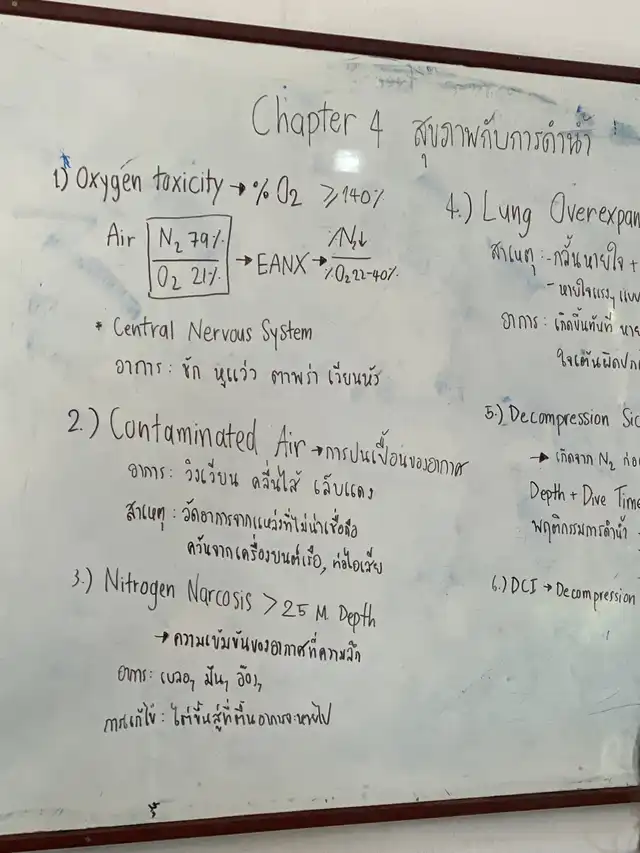 Chapter 4 สุขภาพกับการดำน้ำ
1) Oxygen toxicity → % O2 ≥ 140%
Air N2 79% → EANX → %N2↓
O2 21% %O2 22-40%
* Central Nervous System
อาการ: ชัก หูแว่ว ตาพร่า เวียนหัว
2.) Contaminated Air → การปนเปื้อนของอากาศ
อาการ: วิงเวียน คลื่นไส้ เล็บแดง
สาเหตุ: อัดอากาศจากแหล่งที่ไม่น่าเชื่อถือ
ควันจากเครื่องยนต์เรือ, ท่อไอเสีย
3.) Nitrogen Narcosis > 25 M Depth
→ ความเข้มข้นของอากาศที่ความลึก
อาการ: เบลอๆ มึนๆ อ๊องๆ
การแก้ไข: ไต่ขึ้นสู่ที่ตื้นอาการจะหายไป
4.) Lung Overexpan
สาเหตุ: - กลั้นหายใจ +
- หายใจแรงๆ แบบ
อาการ: เกิดขึ้นทันที หาย
ใจเต้นผิดปก
5.) Decompression Sic
→ เกิดจาก N2 ก่อ
Depth + Dive Time
พฤติกรรมการดำน้ำ
6.) DCI → Decompression